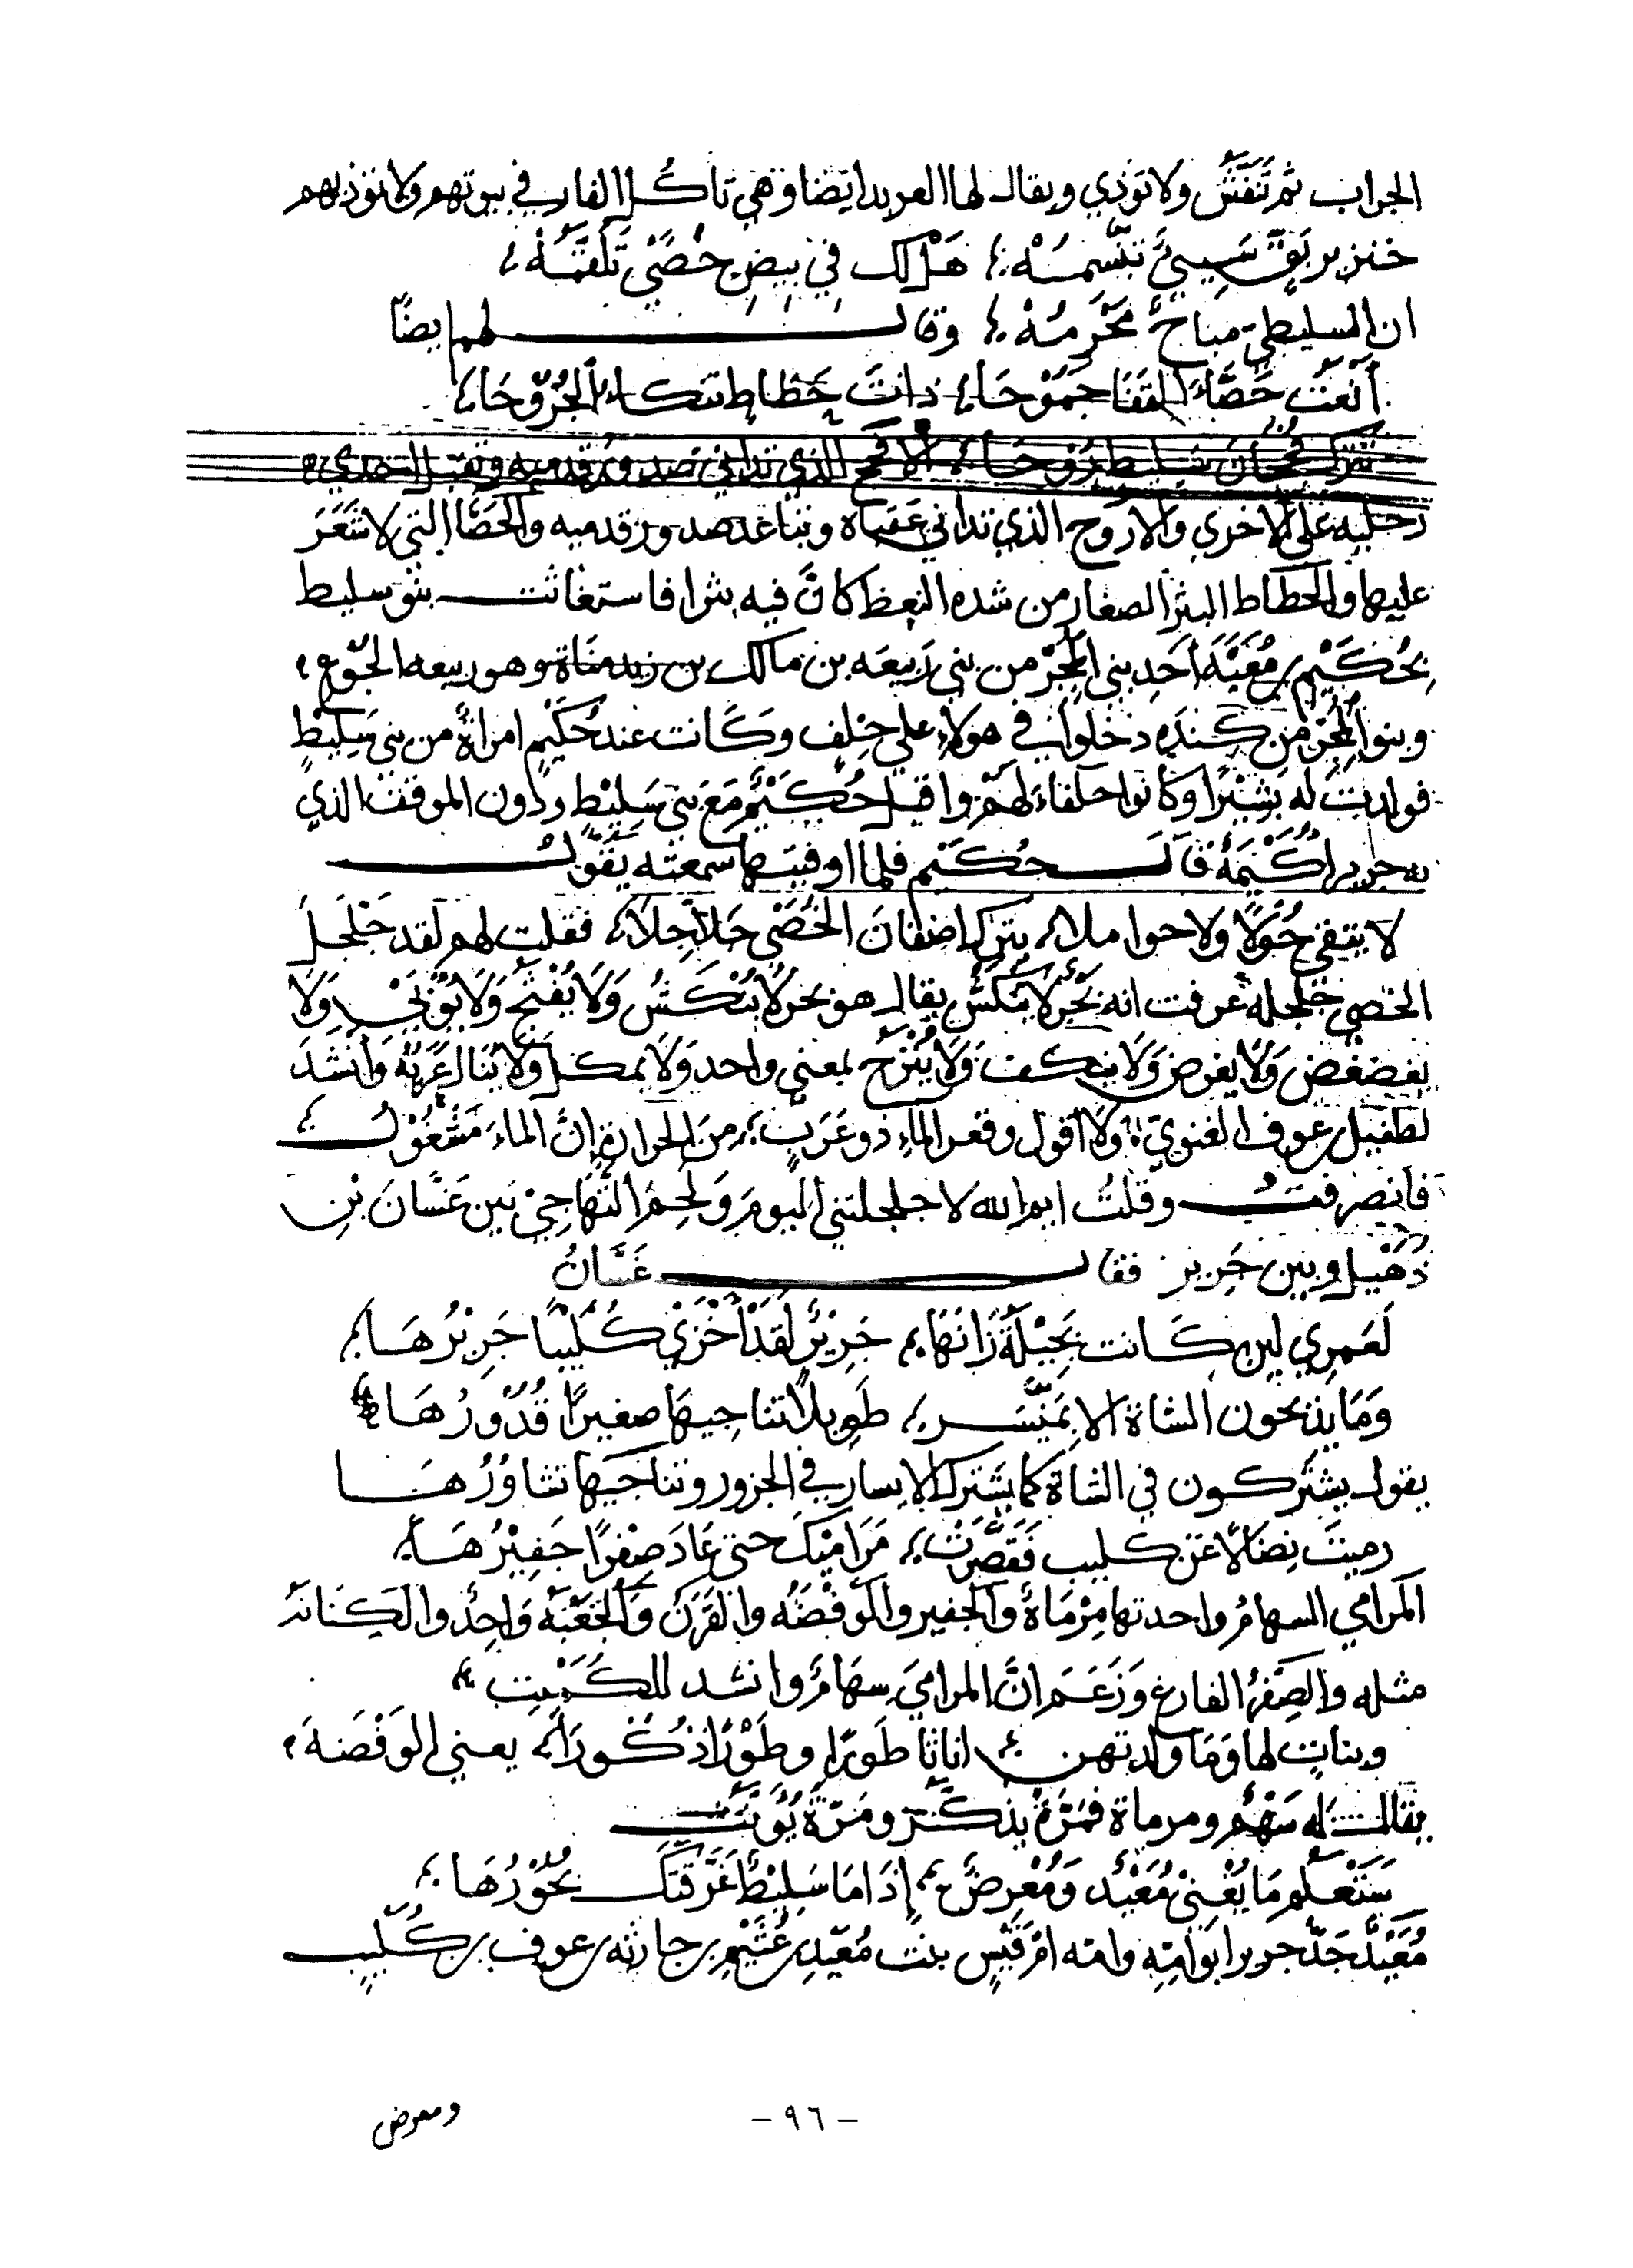 الجراب ثم تَنَفَّشُ ولا توذي ويقال لها العربد ايضا وهي تاكُل الفار في بيوتهم ولا توذيهم
خنزير بَقٍّ سَيِيءٌ تَنَسُّمُهْ هَلْ لك في بيضِ خُصًي تَلَقَّمُهْ
ان السليطيّ مباحٌ مَحْرَمُهْ وقال لهم ايضًا
أنْعَتُ حَصَّاءَ القَفَا جَمُوْحَا ذاتَ حَطاطٍ تنكاءُ الجُرُوْحَا
تترك فُحْجَانَ سليطٍ رُوْحَا الافحج الذي تداني صدور قدميه وتقبل احدي
رجليه على الاخرى والاروح الذي تداني عَقباه وتباعد صدور قدميه والحَصّا التي لا شَعَرَ
عليها والحطاط البثر الصغار من شده النعظ كانَّ فيه بثرا فاستغاثت بنو سليط
بِحُكَيْمِ بن مُعَيَّةَ احَدِ بني المِجَرّ من بني رَبيعَه بن مالك بن زيد مناة وهو ربيعه الجُوْع
وبنوا المِجَرّ من كِندَه دخلوا في هولاءِ علي حِلِف وكَانت عند حُكَيْمٍ امراةٌ من بني سَلِيْطٍ
فولدت له بَشِيْرًا وكانوا حلفاءَ لهُمْ واقبل حُكَيْمٌ مَعَ بني سَلِيْطٍ ودون الموقف الذي
به جرير اُكَيْمَةٌ قال حُكَيْم فلما اوفيتها سمعته يَقُوْلُ
لا يتقي حُوَلًا ولا حواملا يترك اصفانَ الخُصَي جَلاجِلاَ فقلت لهم لقد جَلْجَلَ
الخصي جلجله عرفت انه بَحْر لا يُنكَشُ يقال هو بحر لا يُنْكَشُ وَلَا يُفْثَجُ وَلَا يُوْبَي وَلَا
يغضغض وَلا يغرض وَلَا ينكف وَلَا يُنْزَحُ بمعني واحد وَلَا يمكل ولا يُنَال عَرَبُهُ وَانشَدَ
لطفيل بن عوف الغنويّ ولا اقول وقعر الماءِ ذو عَرَبٍ من الحرارةِ إنّ الماءَ مَشْغُوْلُ
فانصرفتُ وقلتُ ايم الله لا جلجلتني اليوم وَلحِمَ التَّهَاجِيْ بَين غَسَّانَ بْنِ
ذُهَيْلٍ وبين جَرِير فقال غَسَّانُ
لَعَمرِي لين كَانت بَجِيْلَةُ زَانَهَا جَرِيْرٌ لَقَدْ أخْزَيْ كُلَيْبًا جَرِيْرُهَا
وَمَا يذبحون الشاة الا بِمَيْسَرٍ طَويلًا تناجيها صغيرًا قُدُوْرُهَا
يقول يشتَركون في الشاة كما يَشترك الايسار في الجزور وتناجيها تشاوُرُهَا
رميتَ نِضَالًا عَن كليب فَقَصَّرَتْ مَرَامِيْكَ حتى عَادَ صِفْرًا جَفِيْرُهَا
المرامي السهامُ واحدتها مِرْمَاةٌ والجفير والوَفْضَهُ والقَرَنُ وَالجَعْبَةُ وَاحِدٌ والكِنَانَه
مثله والصِفْرُ الفارغ وَزَعَمَ انَّ المرامِيَ سِهَامٌ وانشد للكُمَيْتِ
وبناتٍ لها وَمَا ولدتهن اناثا طَورًا وطَوْرًا ذُكُورَا يعني الوَفْضَةَ
يقال له سَهْمٌ ومرماة فمَرّةً يذكَّر ومَرّةً يُوَنَّثُ
سَتَعْلَمُ مَا يُغْنيْ مُعَيْدٌ وَمُعْرِضٌ إذَا مَا سَلِيْطٌ غَرَّقَتكَ بُحُوْرُهَا
مُعَيْدٌ جَدُّ جرير ابَو امِّهِ وامه امّ قَيْسٍ بنتُ مُعَيْدِ بن عُثَيْمِ بن حارثه بن عوف بن كُلَيبٍ
ومعرض
- ٩٦ -